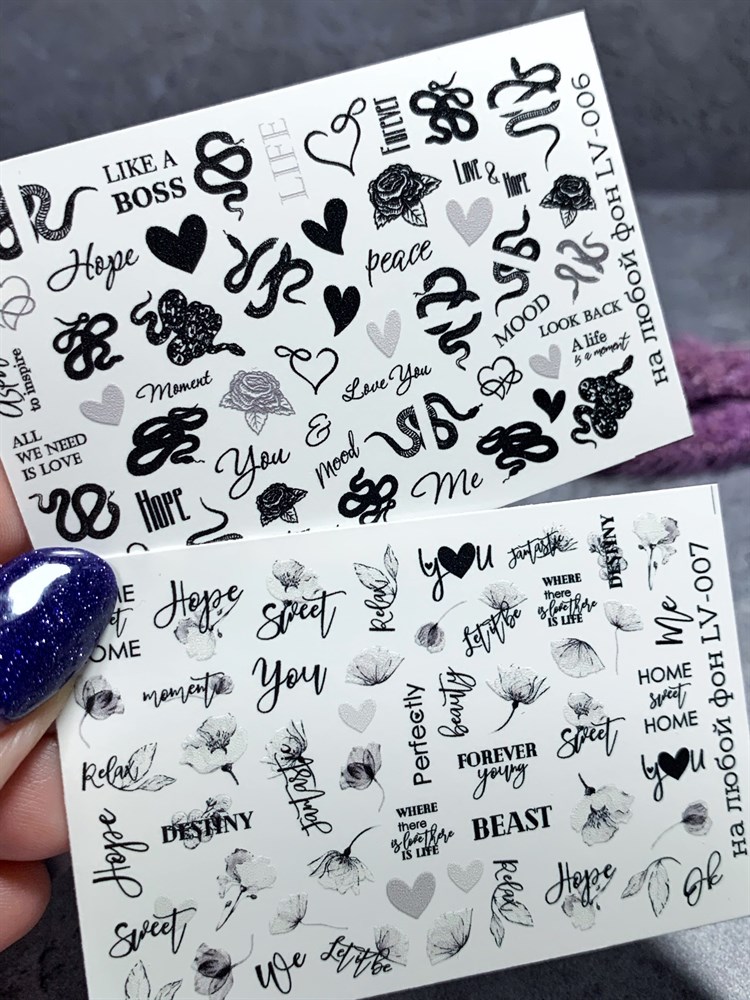 LIKE A
BOSS
LIFE
Forever
Love & Hope
Hope
peace
MOOD
LOOK BACK
A life
is a moment
to inspire
Moment
Love You
ALL
WE NEED
IS LOVE
You
&
Mood
Me
Hope
на любой фон LV-006
HOME
Hope
Sweet
Relax
You
fantastic
DESTINY
WHERE
there
is love there
IS LIFE
Let it be
Me
moment
You
Perfectly
beauty
HOME
sweet
HOME
Sweet
FOREVER
young
You
Relax
fantastic
DESTINY
Hope
WHERE
there
is love there
IS LIFE
BEAST
Sweet
Relax
Hope
Ok
We
Let it be
на любой фон LV-007